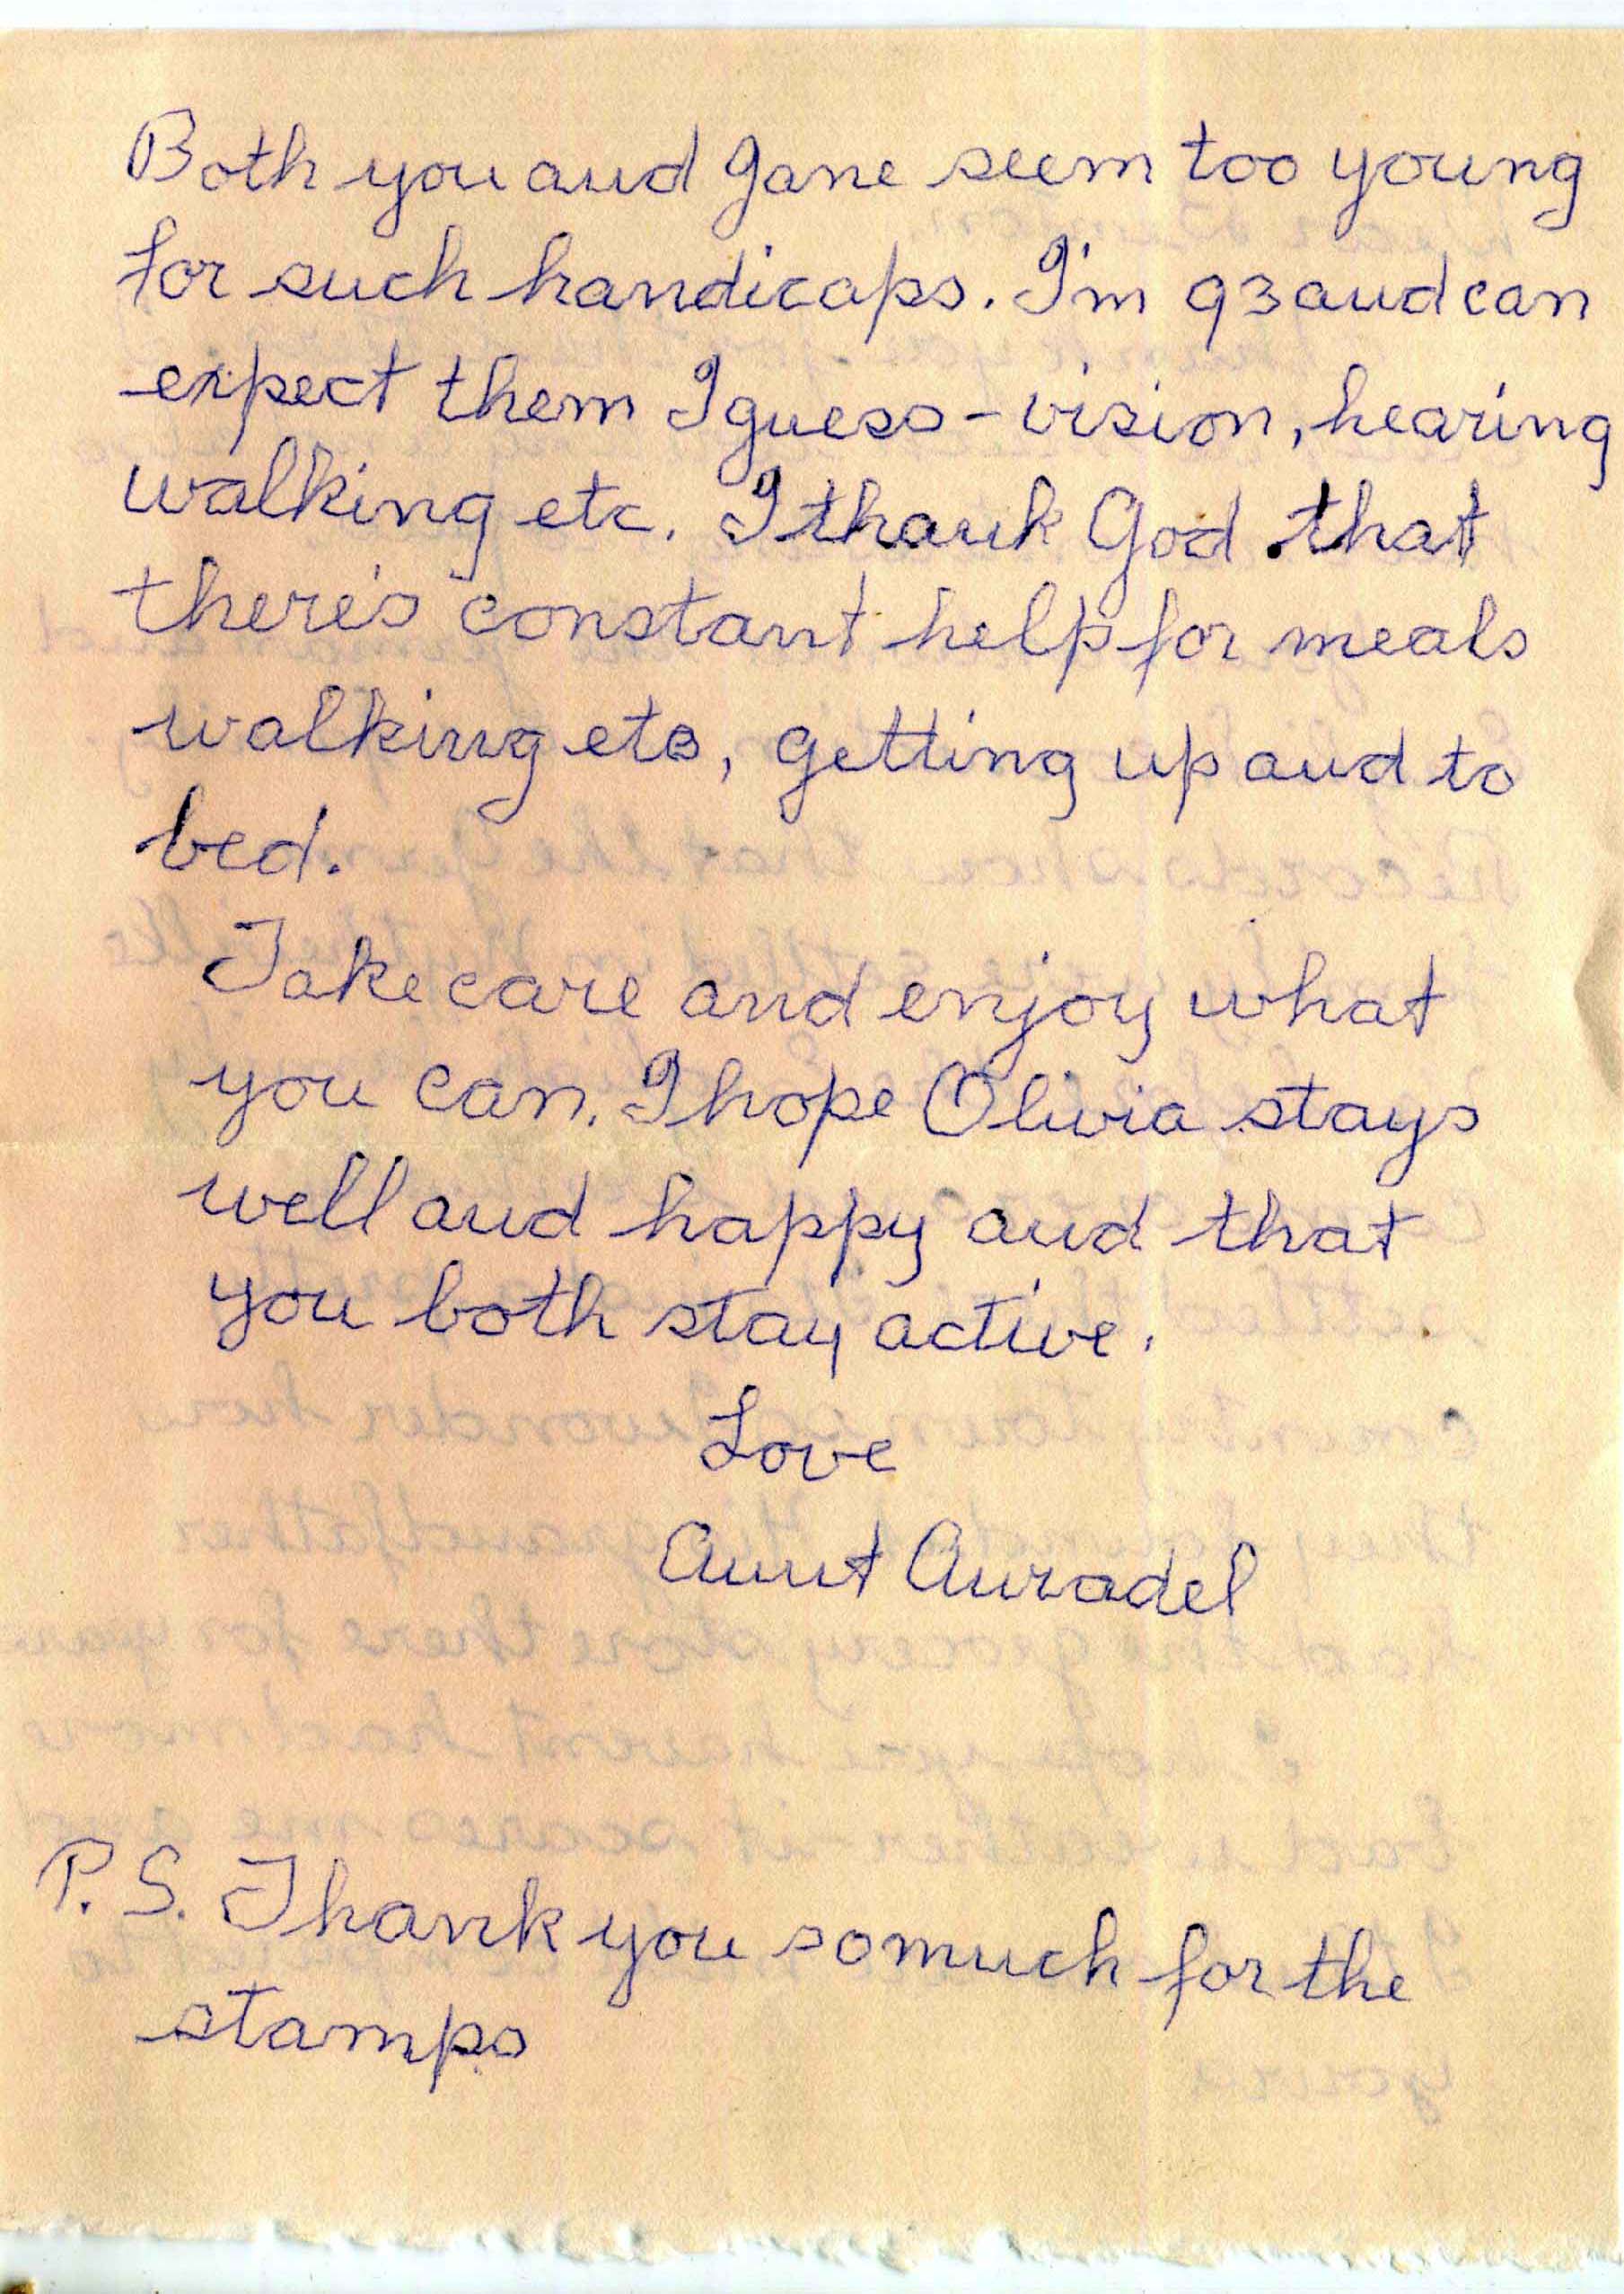 Both you and Jane seem too young
for such handicaps. I'm 93 and can
expect them I guess - vision, hearing
walking etc. I thank God that
there's constant help for meals
walking etc, getting up and to
bed.
Take care and enjoy what
you can. I hope Olivia stays
well and happy and that
you both stay active.
Love
Aunt Auradel
P.S. Thank you so much for the
stamps